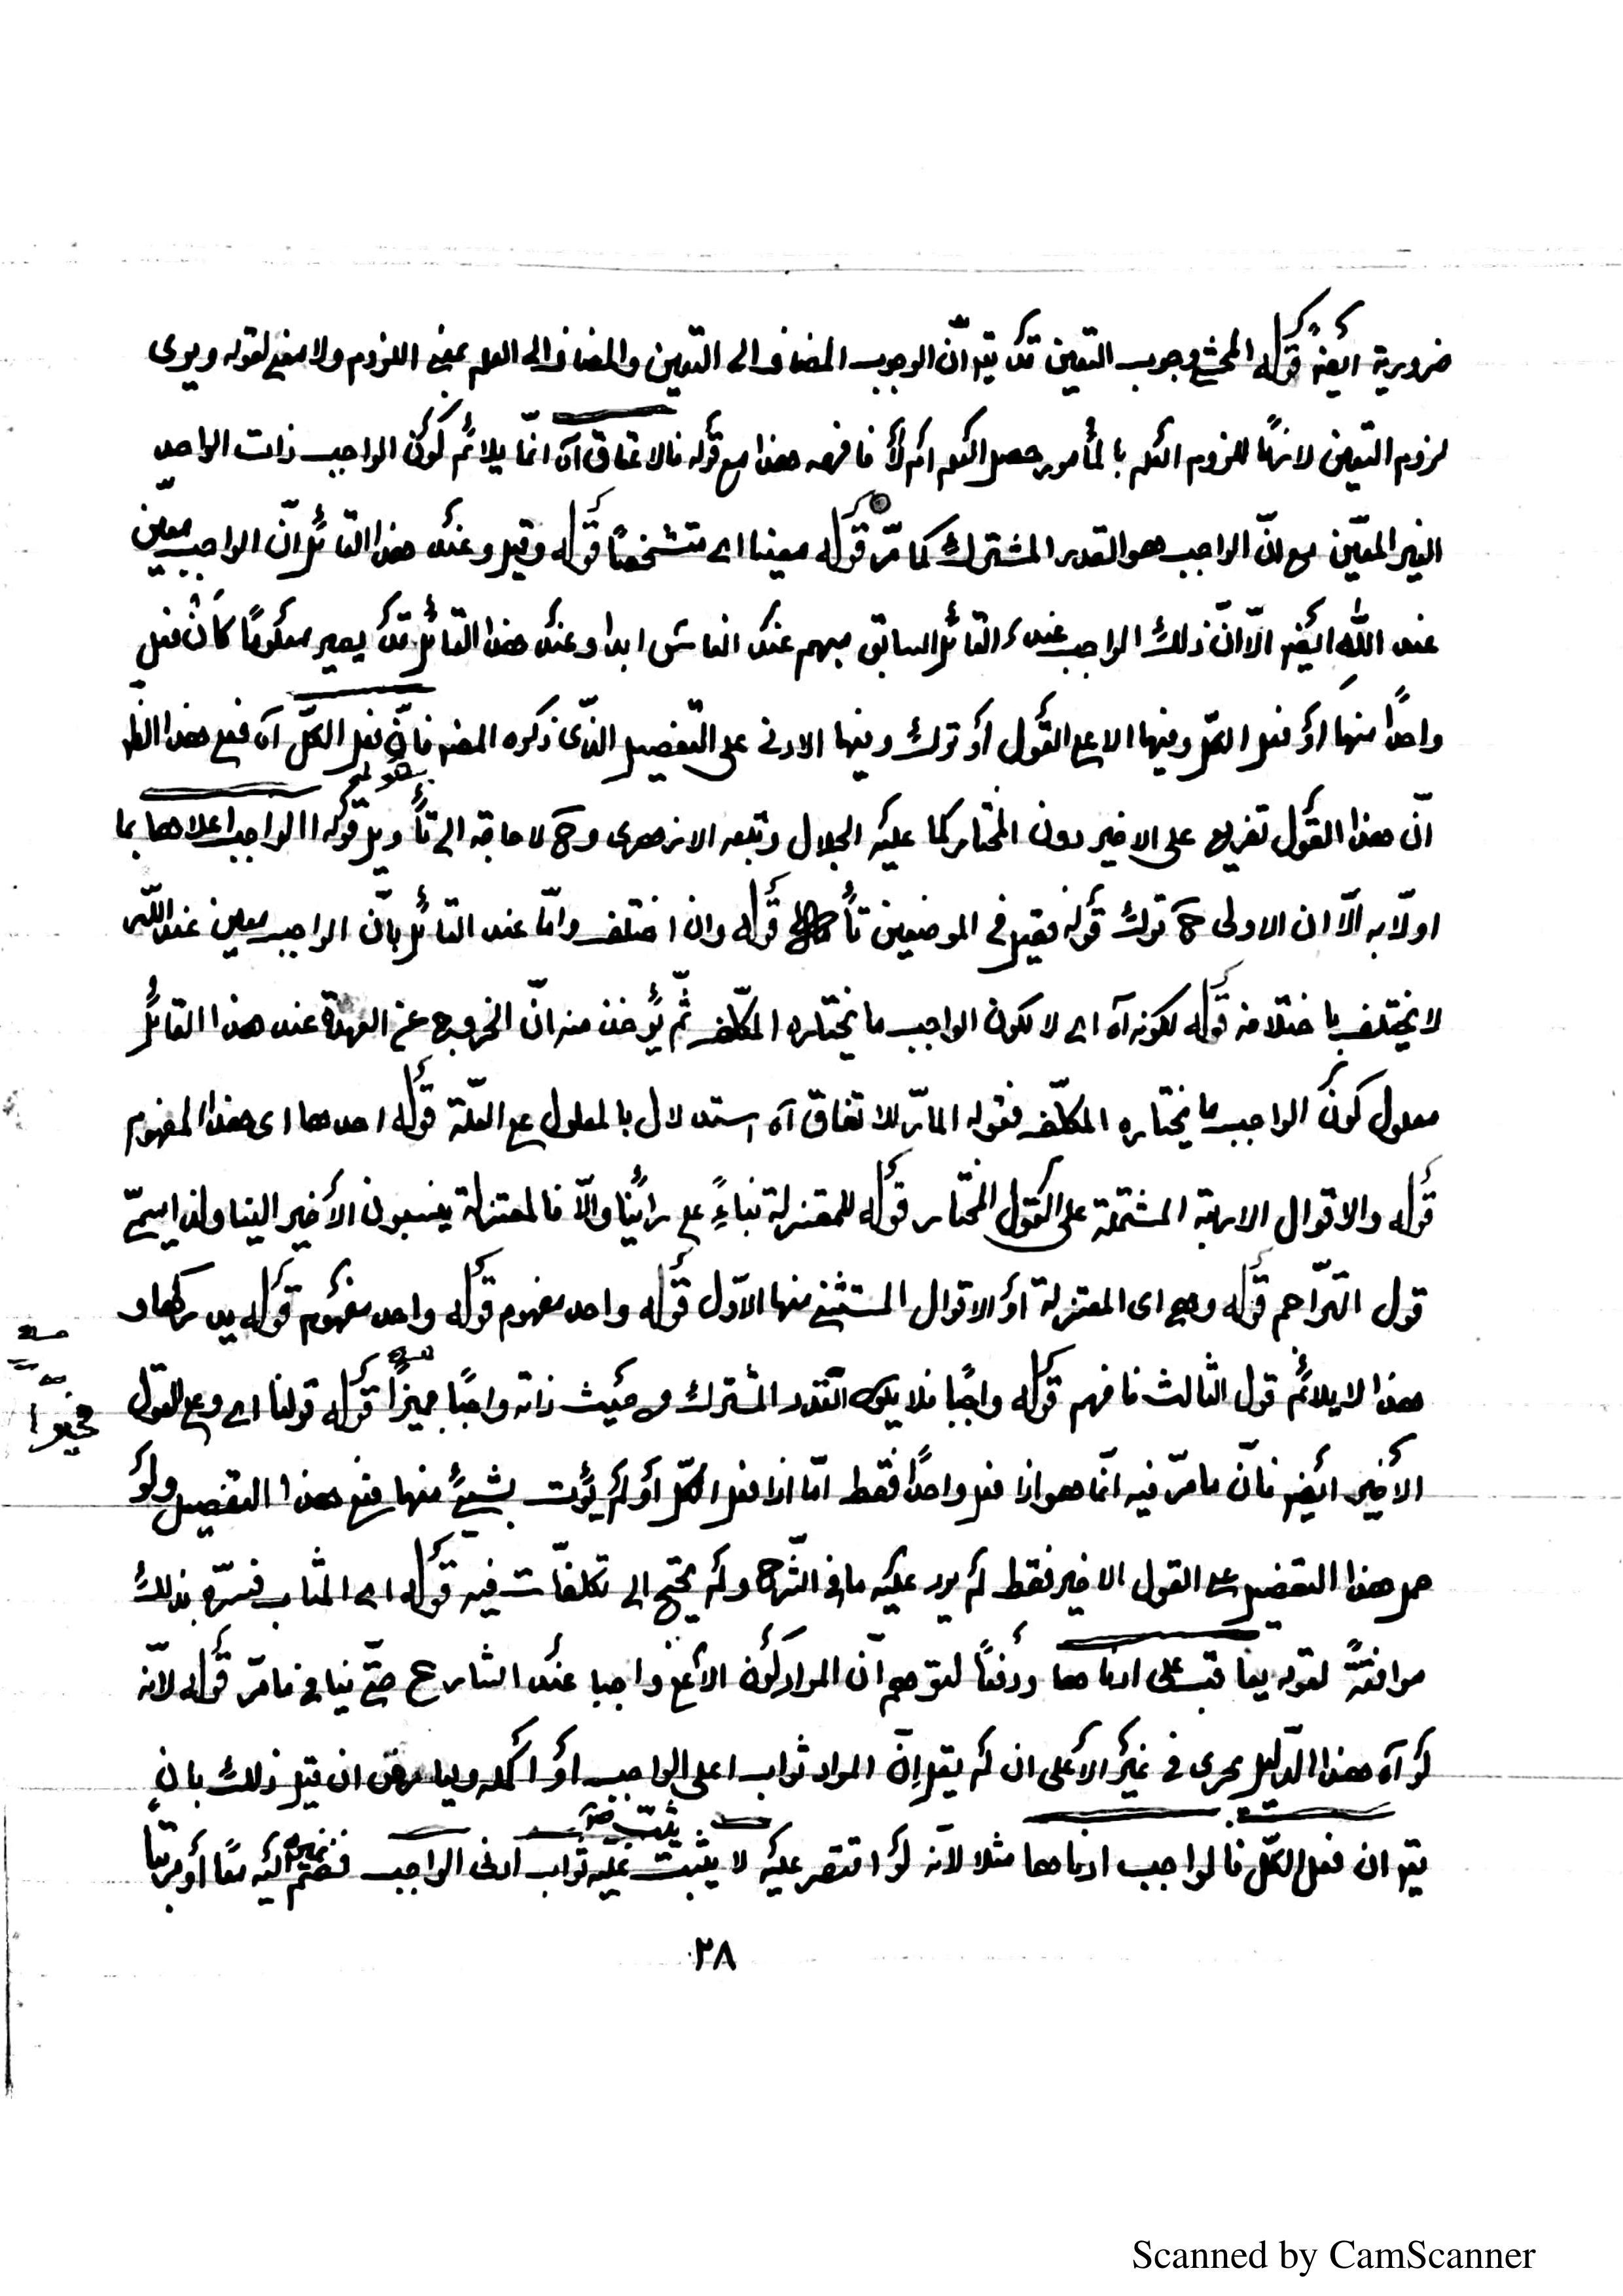 ضرورية ايضہ قوله المحشى وجوب التعين قد يقہ انّ الوجوب المضاف الى التعين والمضاف الى العلم بمعنى اللزوم ولا معنى لقوله ويوى
لزوم التعين لانهّا للزوم العلم بالمأمور حصل العلم ام لا فافهم هذا مع قوله فالاتفاق آه انّما يلائم كون الواجب ذات الواحد
الغير المعّين مع انّ الواجب هو القدر المشترك كما مرّ قوله معينا اى متشخصًا قوله وقيل وعند هذا القائل انّ الواجب معيّن
عند الله ايضہ الّا انّ ذلك الواجب عند القائل السابق مبهم عند الناس ابدا وعند هذا القائل قد يصير معلومًا كأن فعل
واحدًا منها أو فعل الكلّ وفيها الاعلى القول أو ترك وفيها الادنى على التفصيل الذّى ذكره المصہ فانّ فعل الكلّ آه فمع هذا الظہ
انّ هذا القول تفريع على الاخير دون المختار كما عليه الجلال وتبعه الازهرى وح لا حاجة الى تأويل قوله الواجب اعلاها بما
اولّا به الّا ان الاولى ح ترك قوله فقيل فى الموضعين تأ قوله وان اختلف وامّا عند القائل بانّ الواجب معين عند اللّه
لا يختلف باختلافه قوله لكونه آه اى لا لكون الواجب ما يختاره المكلّف ثمّ يؤخذ منه انّ الخروج عن العهدة عند هذا القائل
معلول كون الواجب ما يختاره المكلّف فقوله المارّ للاتفاق آه استدلال بالمعلول على العلّة قوله احدها اى هذا المفهوم
قوله والاقوال الاربعة المشتملة على القول المختار قوله للمعتزلة بناءً على رأينا والّا فالمعتزلة ينسبون الأخير الينا ولذا يسمّى
قول التّراجم قوله وهى اى المعتزلة أو الاقوال المستثنى منها الاوّل قوله واحد مفهوم قوله واحد مفهوم قوله يدركها و
هذا لا يلائم قول الثالث فافهم قوله واجبًا فلا يكون القدر المشترك من حيث ذاته واجبًا مميزًا قوله قولنا اى وعلى القول
الأخير ايضہ فانّ ما مرّ فيه انّما هو اذا فعل واحدًا فقط امّا اذا فعل الكلّ أو لم يؤت بشئ منها فمع هذا التفصيل ولو
حمل هذا التفصيل على القول الاخير فقط لم يرد عليه ما فى الشّرح ولم يحتج الى تكلفات فيه قوله اى المثاب فسرّه بذلك
موافقةً لقوله يعاقب على ادناها ودفعًا لتوهم انّ المراد كون الأعلى واجبا عند الشارح حتّى ينافى ما مرّ قوله لانّه
لو آه هذا الدّليل يجرى فى غير الأعلى ان لم يقل انّ المراد ثواب اعلى الواجب أو أكمله ويعارض ان قيل ذلك بان
يقہ ان فعل الكلّ فالواجب ادناها مثلا لانّه لو اقتصر عليه لا يثبت عليه ثواب ادنى الواجب فضم غيره اليه معًا أو مرتبًا
٢٨
Scanned by CamScanner